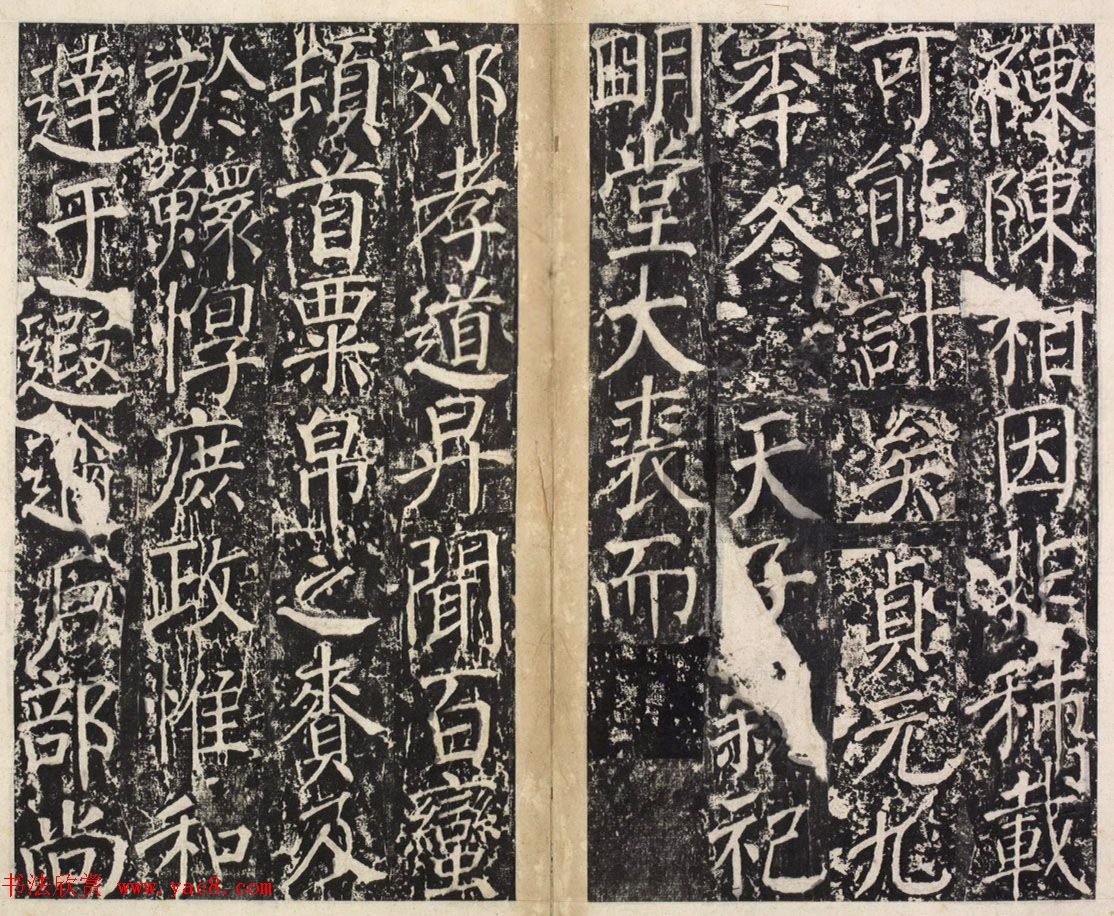 陳陳相因非秭載
可能計矣貞元九
年冬天子祀
明堂大裘而
郊孝道昇聞百蠻
頓首粟帛之賚及
於鰥惸庶政惟和
達乎遐邇戶部尚
书法欣赏 www.yac8.com